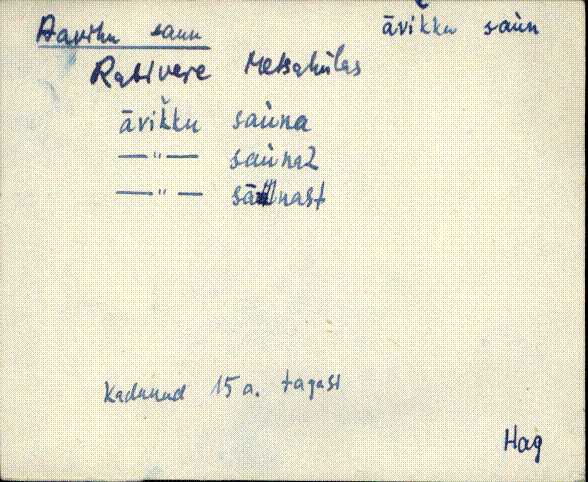 Aaviku saun āvikku saùn
Rabivere Metsakülas
āvikku saùna
—"— saùna2
—"— sāùnast
Kadunud 15 a. tagasi
Hag